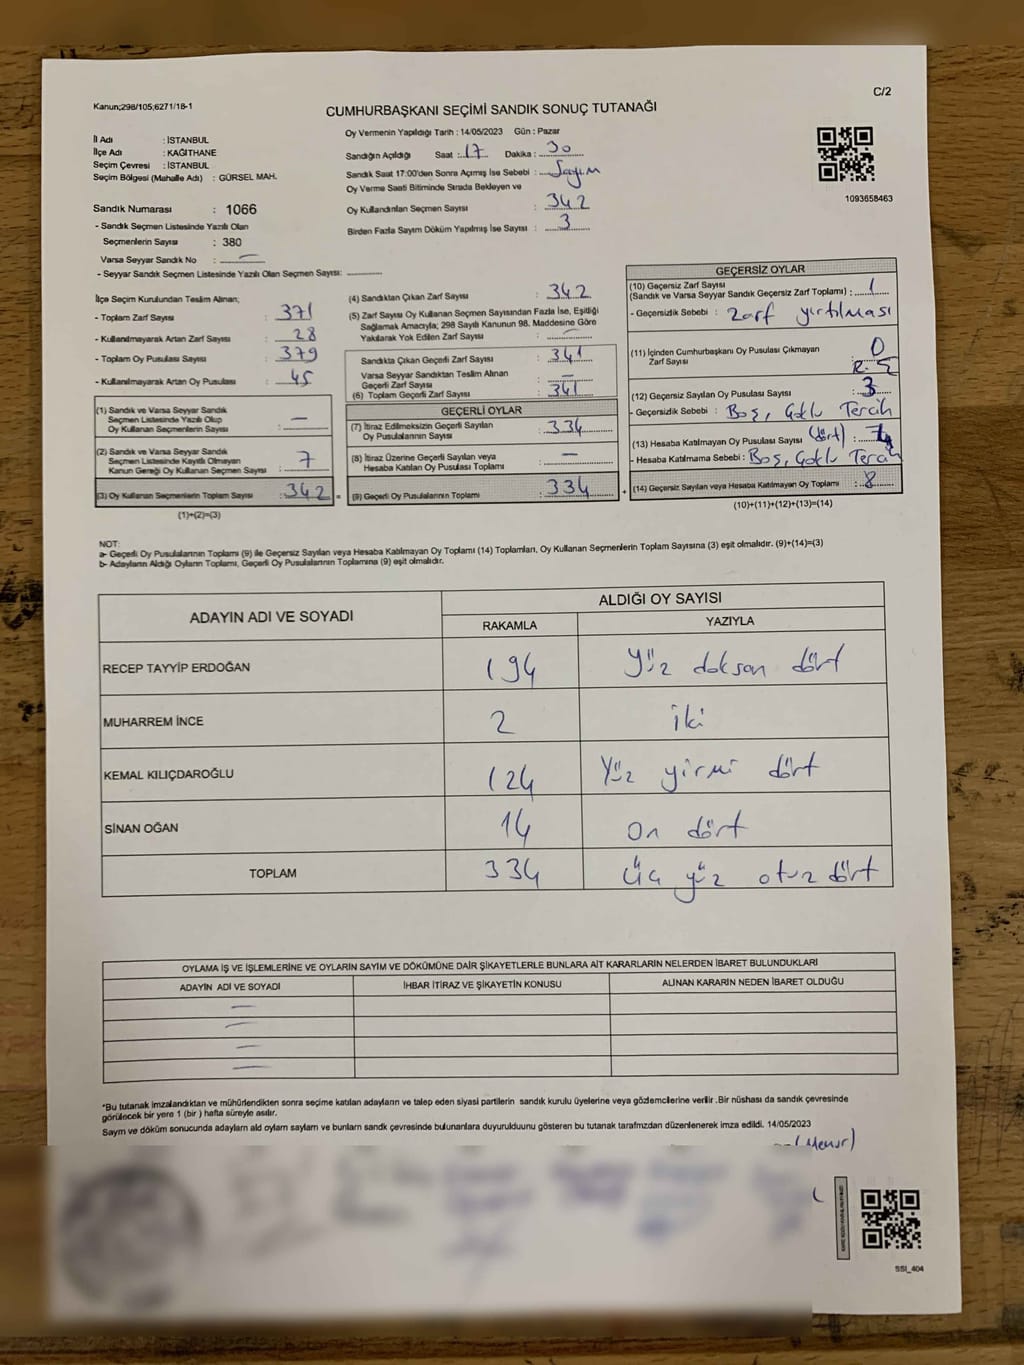 Kanun;298/105;6271/18-1
C/2
CUMHURBAŞKANI SEÇİMİ SANDIK SONUÇ TUTANAĞI
İl Adı : İSTANBUL
İlçe Adı : KAĞITHANE
Seçim Çevresi : İSTANBUL
Seçim Bölgesi (Mahalle Adı) : GÜRSEL MAH.
Sandık Numarası : 1066
- Sandık Seçmen Listesinde Yazılı Olan
Seçmenlerin Sayısı : 380
Varsa Seyyar Sandık No : —
- Seyyar Sandık Seçmen Listesinde Yazılı Olan Seçmen Sayısı:
Oy Vermenin Yapıldığı Tarih : 14/05/2023 Gün : Pazar
Sandığın Açıldığı Saat : 17 Dakika : 30
Sandık Saat 17:00'den Sonra Açımış İse Sebebi : Sayım
Oy Verme Saati Bitiminde Sırada Bekleyen ve
Oy Kullandırılan Seçmen Sayısı : 342
Birden Fazla Sayım Döküm Yapılmış İse Sayısı : 3
1093658463
İlçe Seçim Kurulundan Teslim Alınan;
- Toplam Zarf Sayısı : 371
- Kullanılmayarak Artan Zarf Sayısı : 28
- Toplam Oy Pusulası Sayısı : 379
- Kullanılmayarak Artan Oy Pusulası : 45
(1) Sandık ve Varsa Seyyar Sandık
Seçmen Listesinde Yazılı Olup
Oy Kullanan Seçmenlerin Sayısı : —
(2) Sandık ve Varsa Seyyar Sandık
Seçmen Listesinde Kayıtlı Olmayan
Kanun Gereği Oy Kullanan Seçmen Sayısı : 7
(3) Oy Kullanan Seçmenlerin Toplam Sayısı : 342 =
(1)+(2)=(3)
(4) Sandıktan Çıkan Zarf Sayısı : 342
(5) Zarf Sayısı Oy Kullanan Seçmen Sayısından Fazla İse, Eşitliği
Sağlamak Amacıyla; 298 Sayılı Kanunun 98. Maddesine Göre
Yakılarak Yok Edilen Zarf Sayısı : —
Sandıkta Çıkan Geçerli Zarf Sayısı : 341
Varsa Seyyar Sandıktan Teslim Alınan
Geçerli Zarf Sayısı : —
(6) Toplam Geçerli Zarf Sayısı : 341
GEÇERLİ OYLAR
(7) İtiraz Edilmeksizin Geçerli Sayılan
Oy Pusulalarının Sayısı : 334
(8) İtiraz Üzerine Geçerli Sayılan veya
Hesaba Katılan Oy Pusulası Toplamı : —
(9) Geçerli Oy Pusulalarının Toplamı : 334 +
GEÇERSİZ OYLAR
(10) Geçersiz Zarf Sayısı
(Sandık ve Varsa Seyyar Sandık Geçersiz Zarf Toplamı) : 1
- Geçersizlik Sebebi : Zarf yırtılması
(11) İçinden Cumhurbaşkanı Oy Pusulası Çıkmayan
Zarf Sayısı : 0
(12) Geçersiz Sayılan Oy Pusulası Sayısı : 3
- Geçersizlik Sebebi : Boş, Çoklu Tercih
(13) Hesaba Katılmayan Oy Pusulası Sayısı (dört) :
- Hesaba Katılmama Sebebi : Boş, Çoklu Tercih
(14) Geçersiz Sayılan veya Hesaba Katılmayan Oy Toplamı : 8
(10)+(11)+(12)+(13)=(14)
NOT:
a- Geçerli Oy Pusulalarının Toplamı (9) ile Geçersiz Sayılan veya Hesaba Katılmayan Oy Toplamı (14) Toplamları, Oy Kullanan Seçmenlerin Toplam Sayısına (3) eşit olmalıdır. (9)+(14)=(3)
b- Adayların Aldığı Oyların Toplamı, Geçerli Oy Pusulalarının Toplamına (9) eşit olmalıdır.
ADAYIN ADI VE SOYADI ALDIĞI OY SAYISI
RAKAMLA YAZIYLA
RECEP TAYYİP ERDOĞAN 194 Yüz doksan dört
MUHARREM İNCE 2 iki
KEMAL KILIÇDAROĞLU 124 Yüz yirmi dört
SİNAN OĞAN 14 On dört
TOPLAM 334 Üç yüz otuz dört
OYLAMA İŞ VE İŞLEMLERİNE VE OYLARIN SAYIM VE DÖKÜMÜNE DAİR ŞİKAYETLERLE BUNLARA AİT KARARLARIN NELERDEN İBARET BULUNDUKLARI
ADAYIN ADI VE SOYADI İHBAR İTİRAZ VE ŞİKAYETİN KONUSU ALINAN KARARIN NEDEN İBARET OLDUĞU
—
—
—
—
*Bu tutanak imzalandıktan ve mühürlendikten sonra seçime katılan adayların ve talep eden siyasi partilerin sandık kurulu üyelerine veya gözlemcilerine verilir .Bir nüshası da sandık çevresinde
görülecek bir yere 1 (bir ) hafta süreyle asılır.
Sayım ve döküm sonucunda adayların aldı oyların sayıları ve bunların sandık çevresinde bulunanlara duyurulduunu gösteren bu tutanak tarafımızdan düzenlenerek imza edildi. 14/05/2023
SSI_404